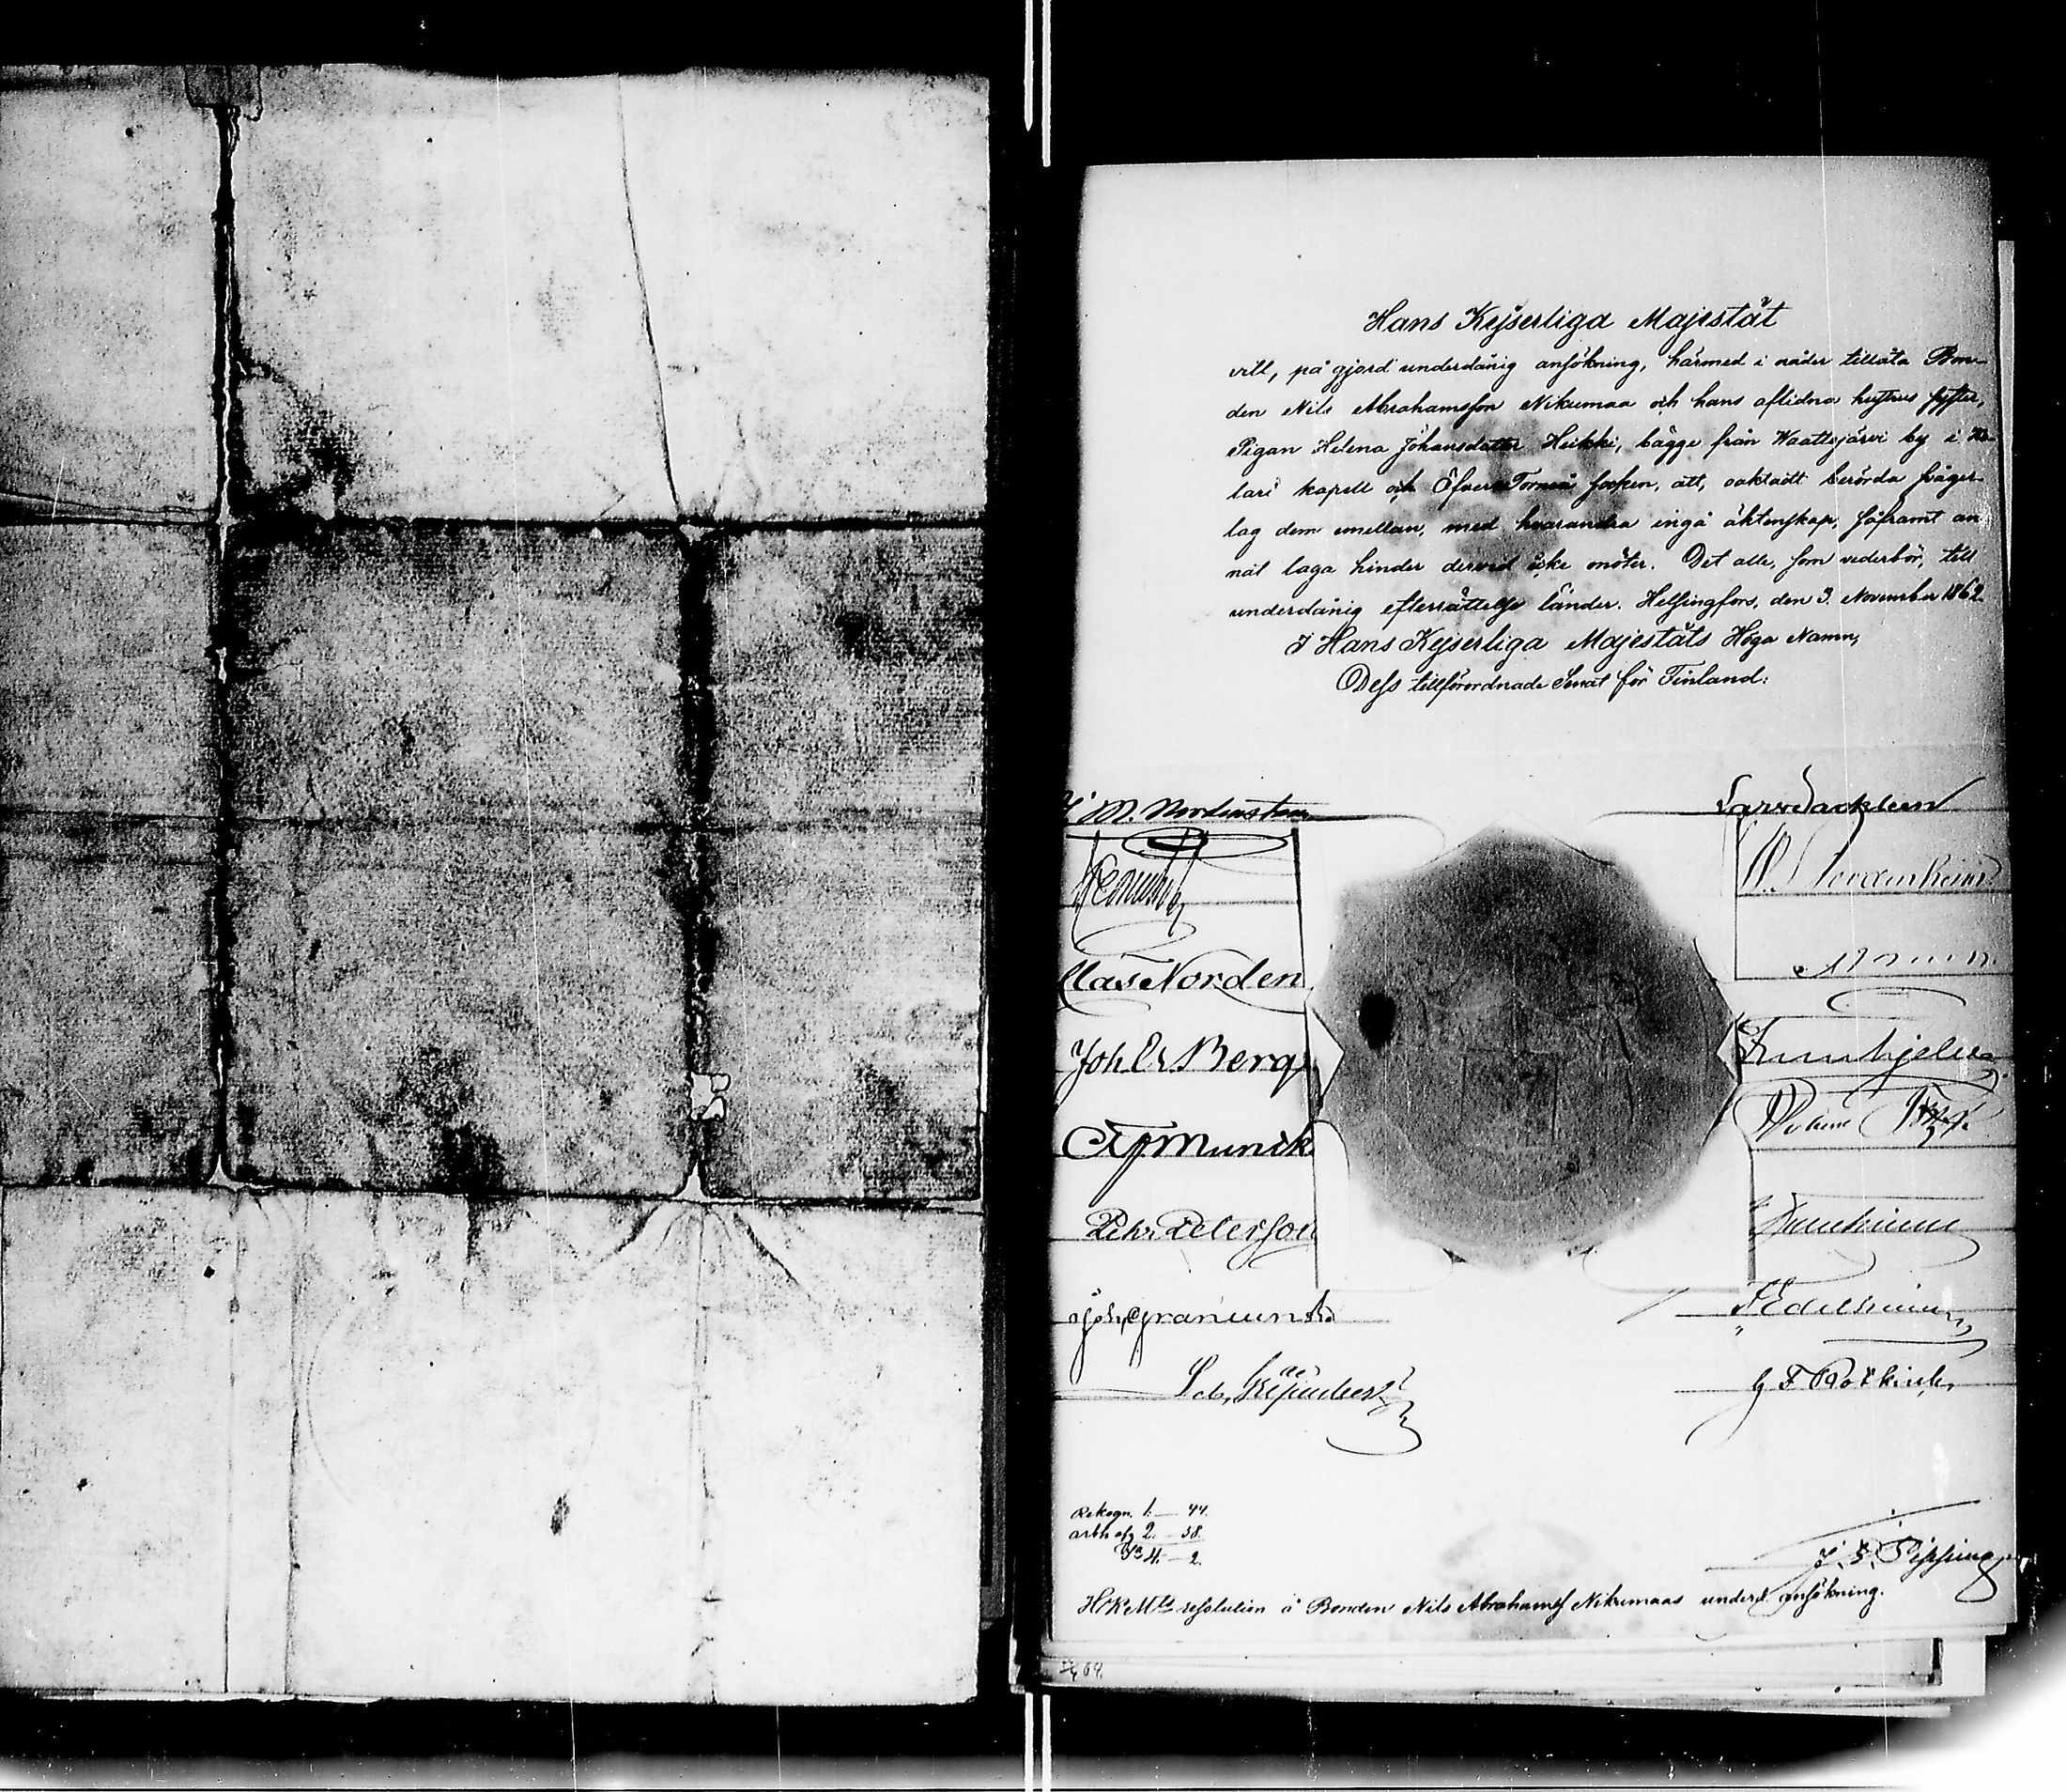 Hans Kejserliga Majestät
vill, på gjord underdånig ansökning, härmed i nåder tillåta Bon-
den Nils Abrahamsson Nikumaa och hans aflidna hustrus syster,
Pigan Helena Johansdotter Heikki, bägge från Waattojärvi by i Ko-
lari kapell och Öfvera Torneå socken, att, oaktadt berörda svåger-
lag dem emellan, med hvarandra ingå äktenskap, såframt an-
nat laga hinder dervid icke möter. Det alle, som vederbör, till
underdånig efterrättelse länder. Helsingfors, den 3 November 1862.
I Hans Kejserliga Majestäts Höga Namn,
Dess tillförordnade Senat för Finland:
J M. Nordenstam
Clas Norden
Joh Es Bergb
Af Munck
Pehr Peterson
Joh, Granlund
F Edelheim
G F Rotkirch
Rekogn. 1. — 44.
arbh afg 2. — 58.
4. — 2.
J. E. Pipping
HKMts resolution å Bonden Nils Abrahamss Nikumaas underd ansökning.